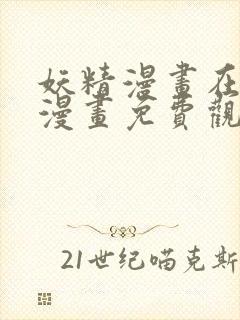 妖精漫畫在
漫畫免費觀
21世纪喵克斯